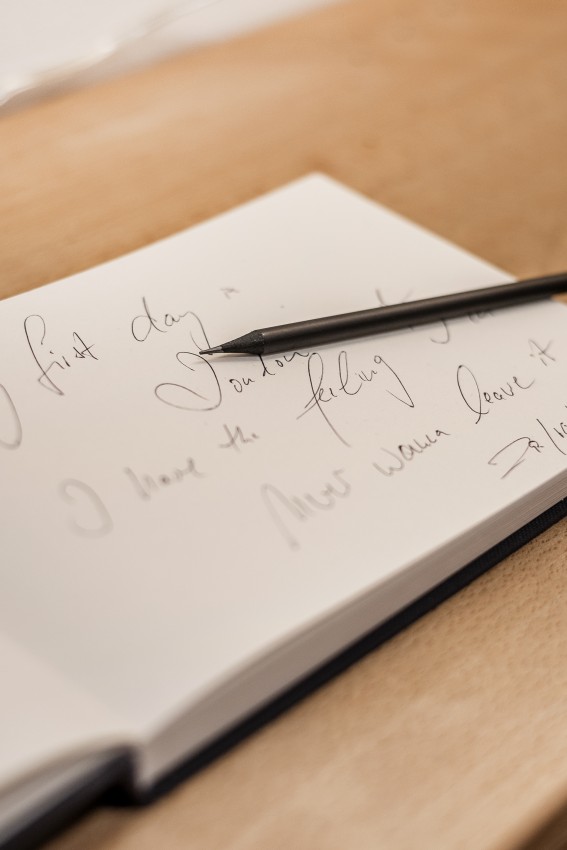 first day in
London
I have the feeling
Never wanna leave it